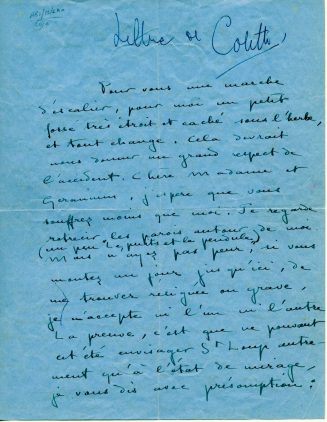 Lettre de Colette,
Pour vous une marche
d'escalier, pour moi un petit
fossé très étroit et caché sous l'herbe,
et tout change. Cela devrait
nous donner un grand respect de
l'accident. Chère madame et
j'espère que vous
souffrez moins que moi. Je regarde
les parois autour de moi
(un peu "Le puits et le pendule")
Mais n'ayez pas peur, si vous
montez un jour jusqu'ici, de
me trouver résignée ou grave,
je n'accepte ni l'un ni l'autre
La preuve, c'est que ne pouvant
cet été envisager St Loup autre-
ment qu'à l'état de mirage,
je vous dis avec présomption :